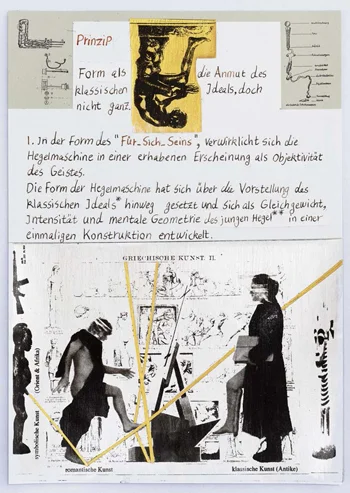 Prinzip
Form als die Anmut des
klassischen Ideals, doch
nicht ganz.
1. In der Form des "Für_Sich_Seins", verwirklicht sich die
Hegelmaschine in einer erhabenen Erscheinung als Objektivität
des Geistes.
Die Form der Hegelmaschine hat sich über die Vorstellung des
klassischen Ideals* hinweg gesetzt und sich als Gleichgewicht,
Intensität und mentale Geometrie des jungen Hegel** in einer
einmaligen Konstruktion entwickelt.
GRIECHISCHE KUNST. II.
symbolische Kunst (Orient & Afrika)
romantische Kunst
klassische Kunst (Antike)